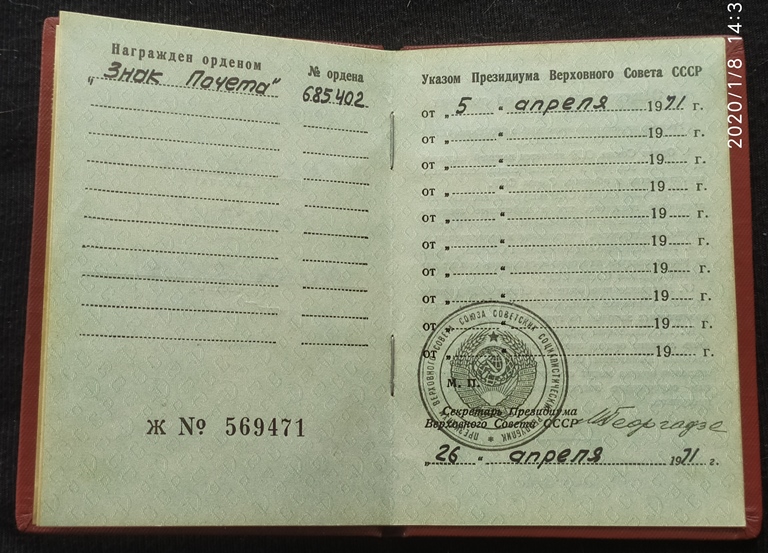 Награжден орденом
№ ордена
„Знак Почета"
685402
Ж № 569471
Указом Президиума Верховного Совета СССР
от „ 5 " апреля 1971 г.
от „ " 19 г.
от „ " 19 г.
от „ " 19 г.
от „ " 19 г.
от „ " 19 г.
от „ " 19 г.
от „ " 19 г.
от „ " 19 г.
от „ " 19 г.
ПРЕЗИДИУМ ВЕРХОВНОГО СОВЕТА СОЮЗА СОВЕТСКИХ СОЦИАЛИСТИЧЕСКИХ РЕСПУБЛИК
М. П.
Секретарь Президиума
Верховного Совета СССР
МГеоргадзе
„ 26 " апреля 1971 г.
2020/1/8 14:3